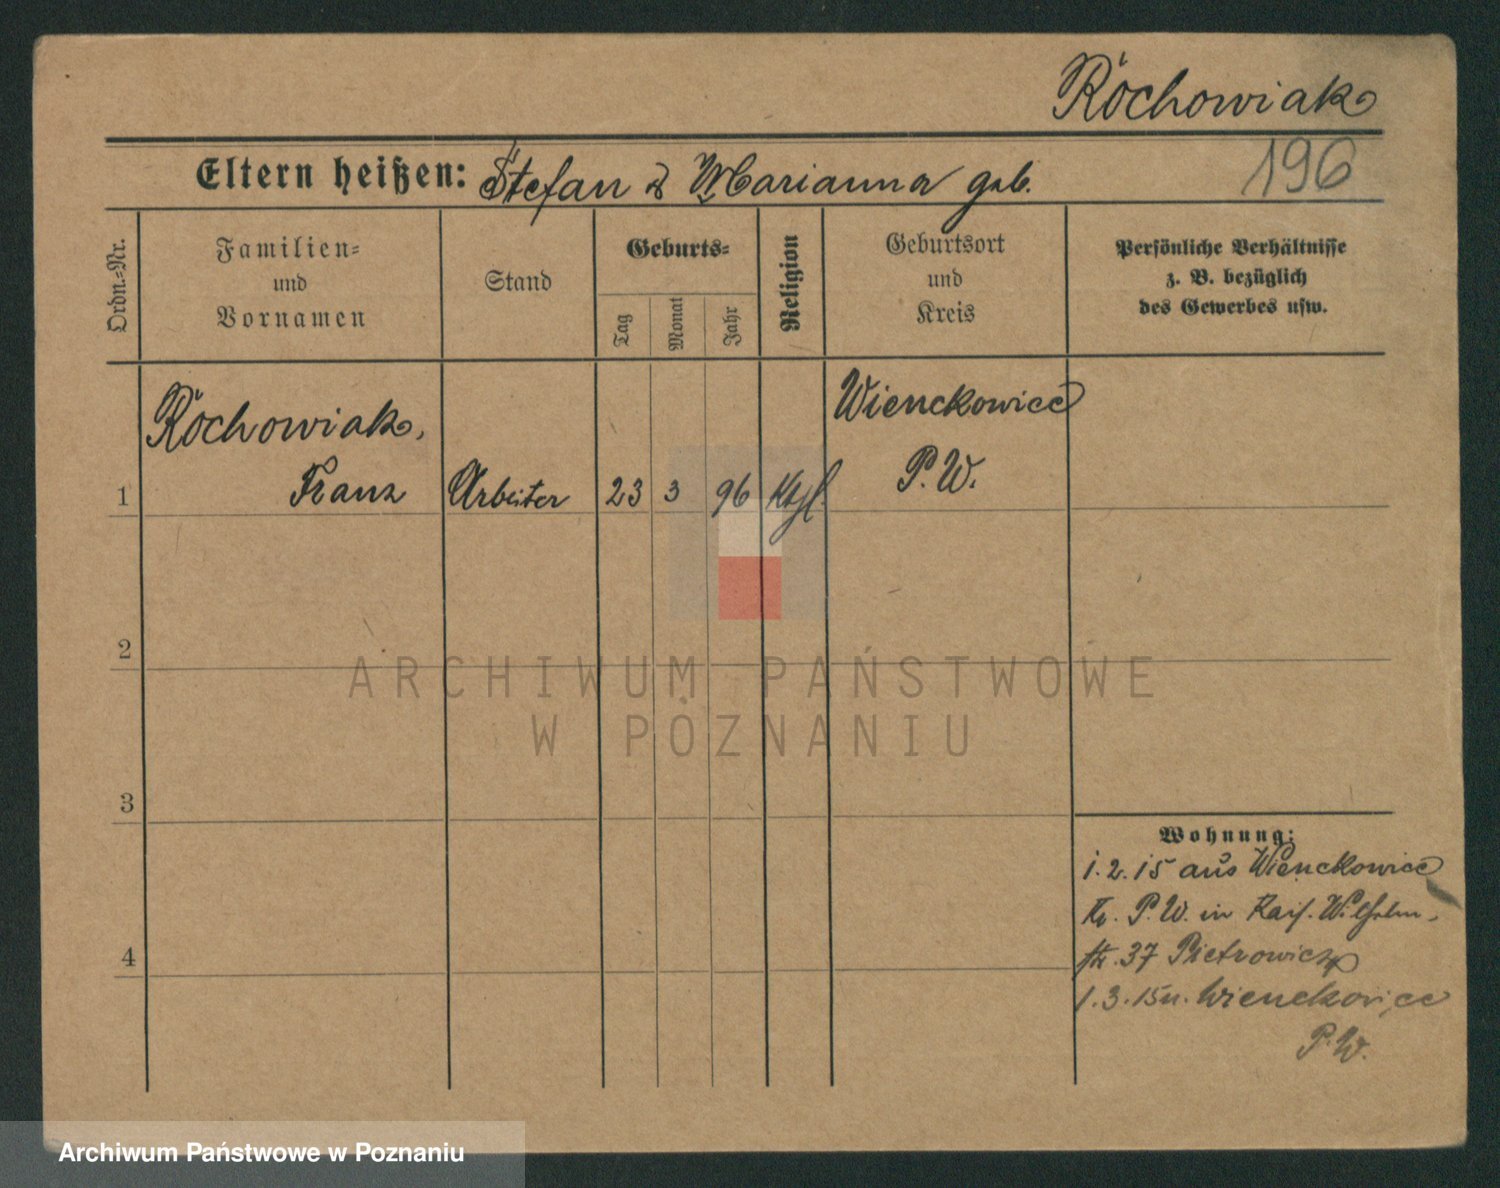 Rochowiak
196
Eltern heißen: Stefan & Marianna geb.
Ordn.-Nr.
Familien-
und
Vornamen
Stand
Geburts-
Tag
Monat
Jahr
Religion
Geburtsort
und
Kreis
Persönliche Verhältnisse
z. B. bezüglich
des Gewerbes usw.
Rochowiak,
Franz
1
Arbeiter
23
3
96
Kthl.
Wienckowice
P. W.
2
3
4
Wohnung:
1.2.15 aus Wienckowice
Kr. P. W. in Kais. Wilhelm-
str. 37 Pietrowicz
1.3.15 n. Wienckowice
P. W.
ARCHIWUM PAŃSTWOWE
W POZNANIU
Archiwum Państwowe w Poznaniu